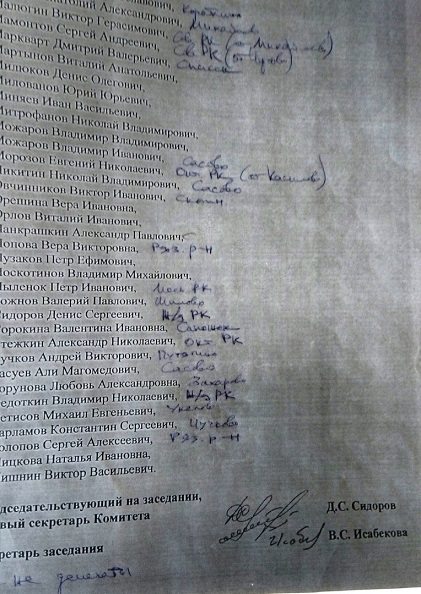 натолий Александрович, Кораблино
Малюгин Виктор Герасимович, Михайлов
Мамонтов Сергей Андреевич, Св. РК (от Михайлов)
Маркварт Дмитрий Валерьевич, Св. РК
Мартынов Виталий Анатольевич,
Милюков Денис Олегович,
Милованов Юрий Юрьевич,
Миняев Иван Васильевич,
Митрофанов Николай Владимирович,
Можаров Владимир Владимирович,
Можаров Владимир Иванович,
Морозов Евгений Николаевич, Сасово
Никитин Николай Владимирович, Окт РК (от Касимово)
Овчинников Виктор Иванович, Сасово
Орешина Вера Ивановна, Скопин
Орлов Виталий Иванович,
Панкрашкин Александр Павлович,
Попова Вера Викторовна, Ряз. р-н
Пузаков Петр Ефимович,
Поскотинов Владимир Михайлович,
Пыленок Петр Иванович, Моск РК
ожнов Валерий Павлович, Шилово
Сидоров Денис Сергеевич, Ж/д РК
Сорокина Валентина Ивановна, Сапожок
Стежкин Александр Николаевич, Окт РК
учков Андрей Викторович, Путятино
асуев Али Магомедович, Сасово
орунова Любовь Александровна, Захарово
едоткин Владимир Николаевич, Ж/д РК
етисов Михаил Евгеньевич, Ухолово
арламов Константин Сергеевич, Чучково
олопов Сергей Алексеевич, Ряз. р-н
ицкова Наталья Ивановна,
ишнин Виктор Васильевич.
дседательствующий на заседании,
вый секретарь Комитета Д.С. Сидоров
ретарь заседания В.С. Исабекова
не делегаты